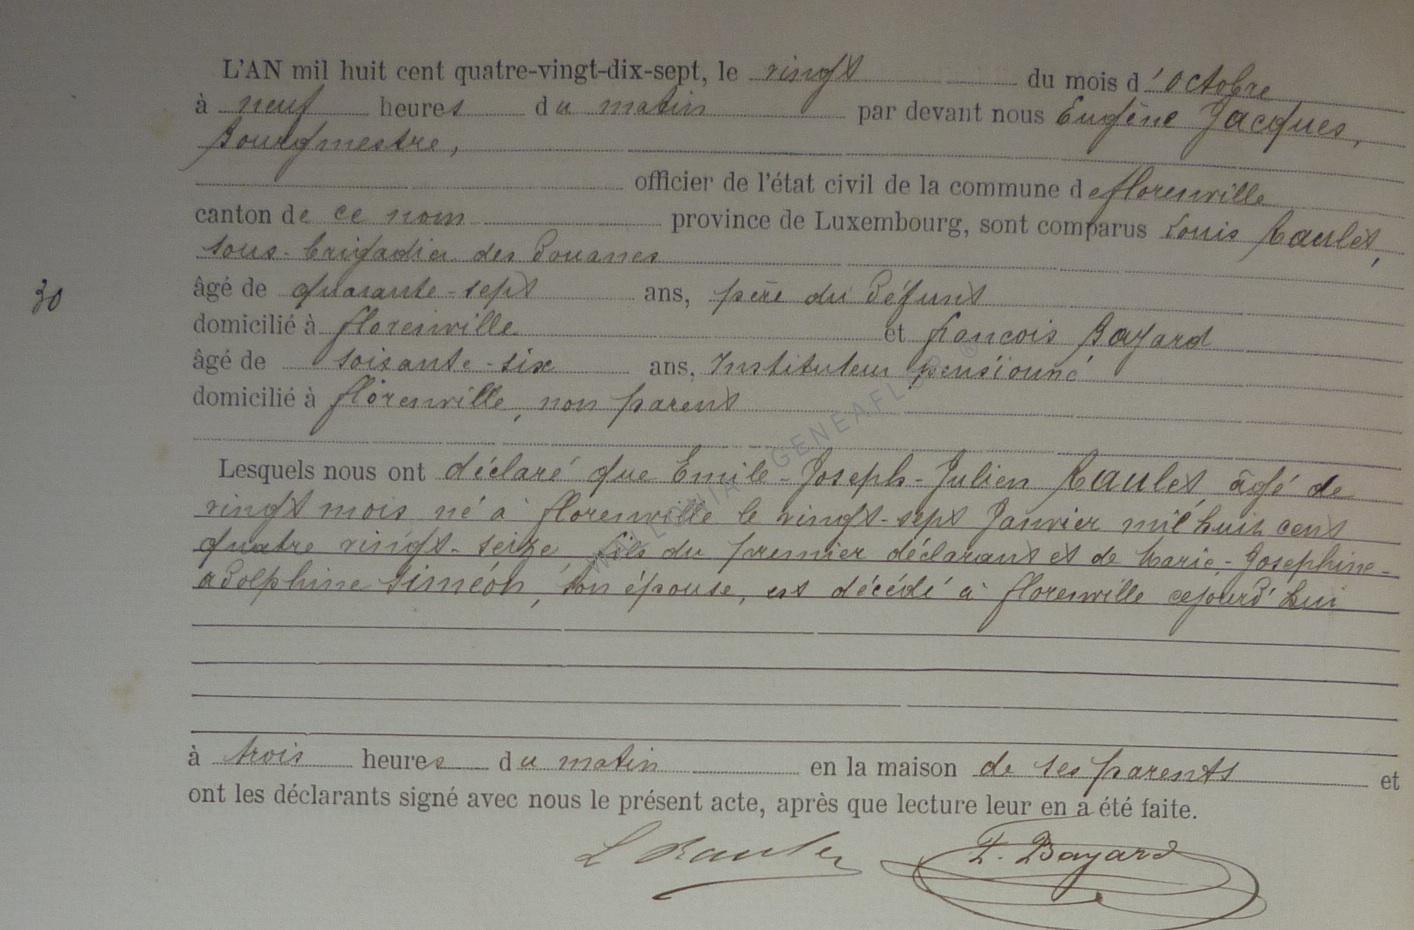 L'AN mil huit cent quatre-vingt-dix-sept, le vingt du mois d'octobre
à neuf heures du matin par devant nous Eugène Jacques,
Bourgmestre,
officier de l'état civil de la commune de florenville
canton de ce nom province de Luxembourg, sont comparus Louis Raulet,
sous-brigadier des Douanes
30
âgé de quarante-sept ans, père du Défunt
domicilié à florenville et françois Bayard
âgé de soisante-six ans, Instituteur pensionné
domicilié à florenville, non parent
Lesquels nous ont déclaré que Emile-Joseph-Julien Raulet, âgé de
vingt mois, né à florenville le vingt-sept Janvier mil huit cent
quatre vingt-seize, fils du premier déclarant et de Marie-Josephine-
adolphine Siméon, son épouse, est décédé à florenville cejourd'hui
à trois heures du matin en la maison de ses parents et
ont les déclarants signé avec nous le présent acte, après que lecture leur en a été faite.
L Raulet F. Bayard
GENEAFLOR ®